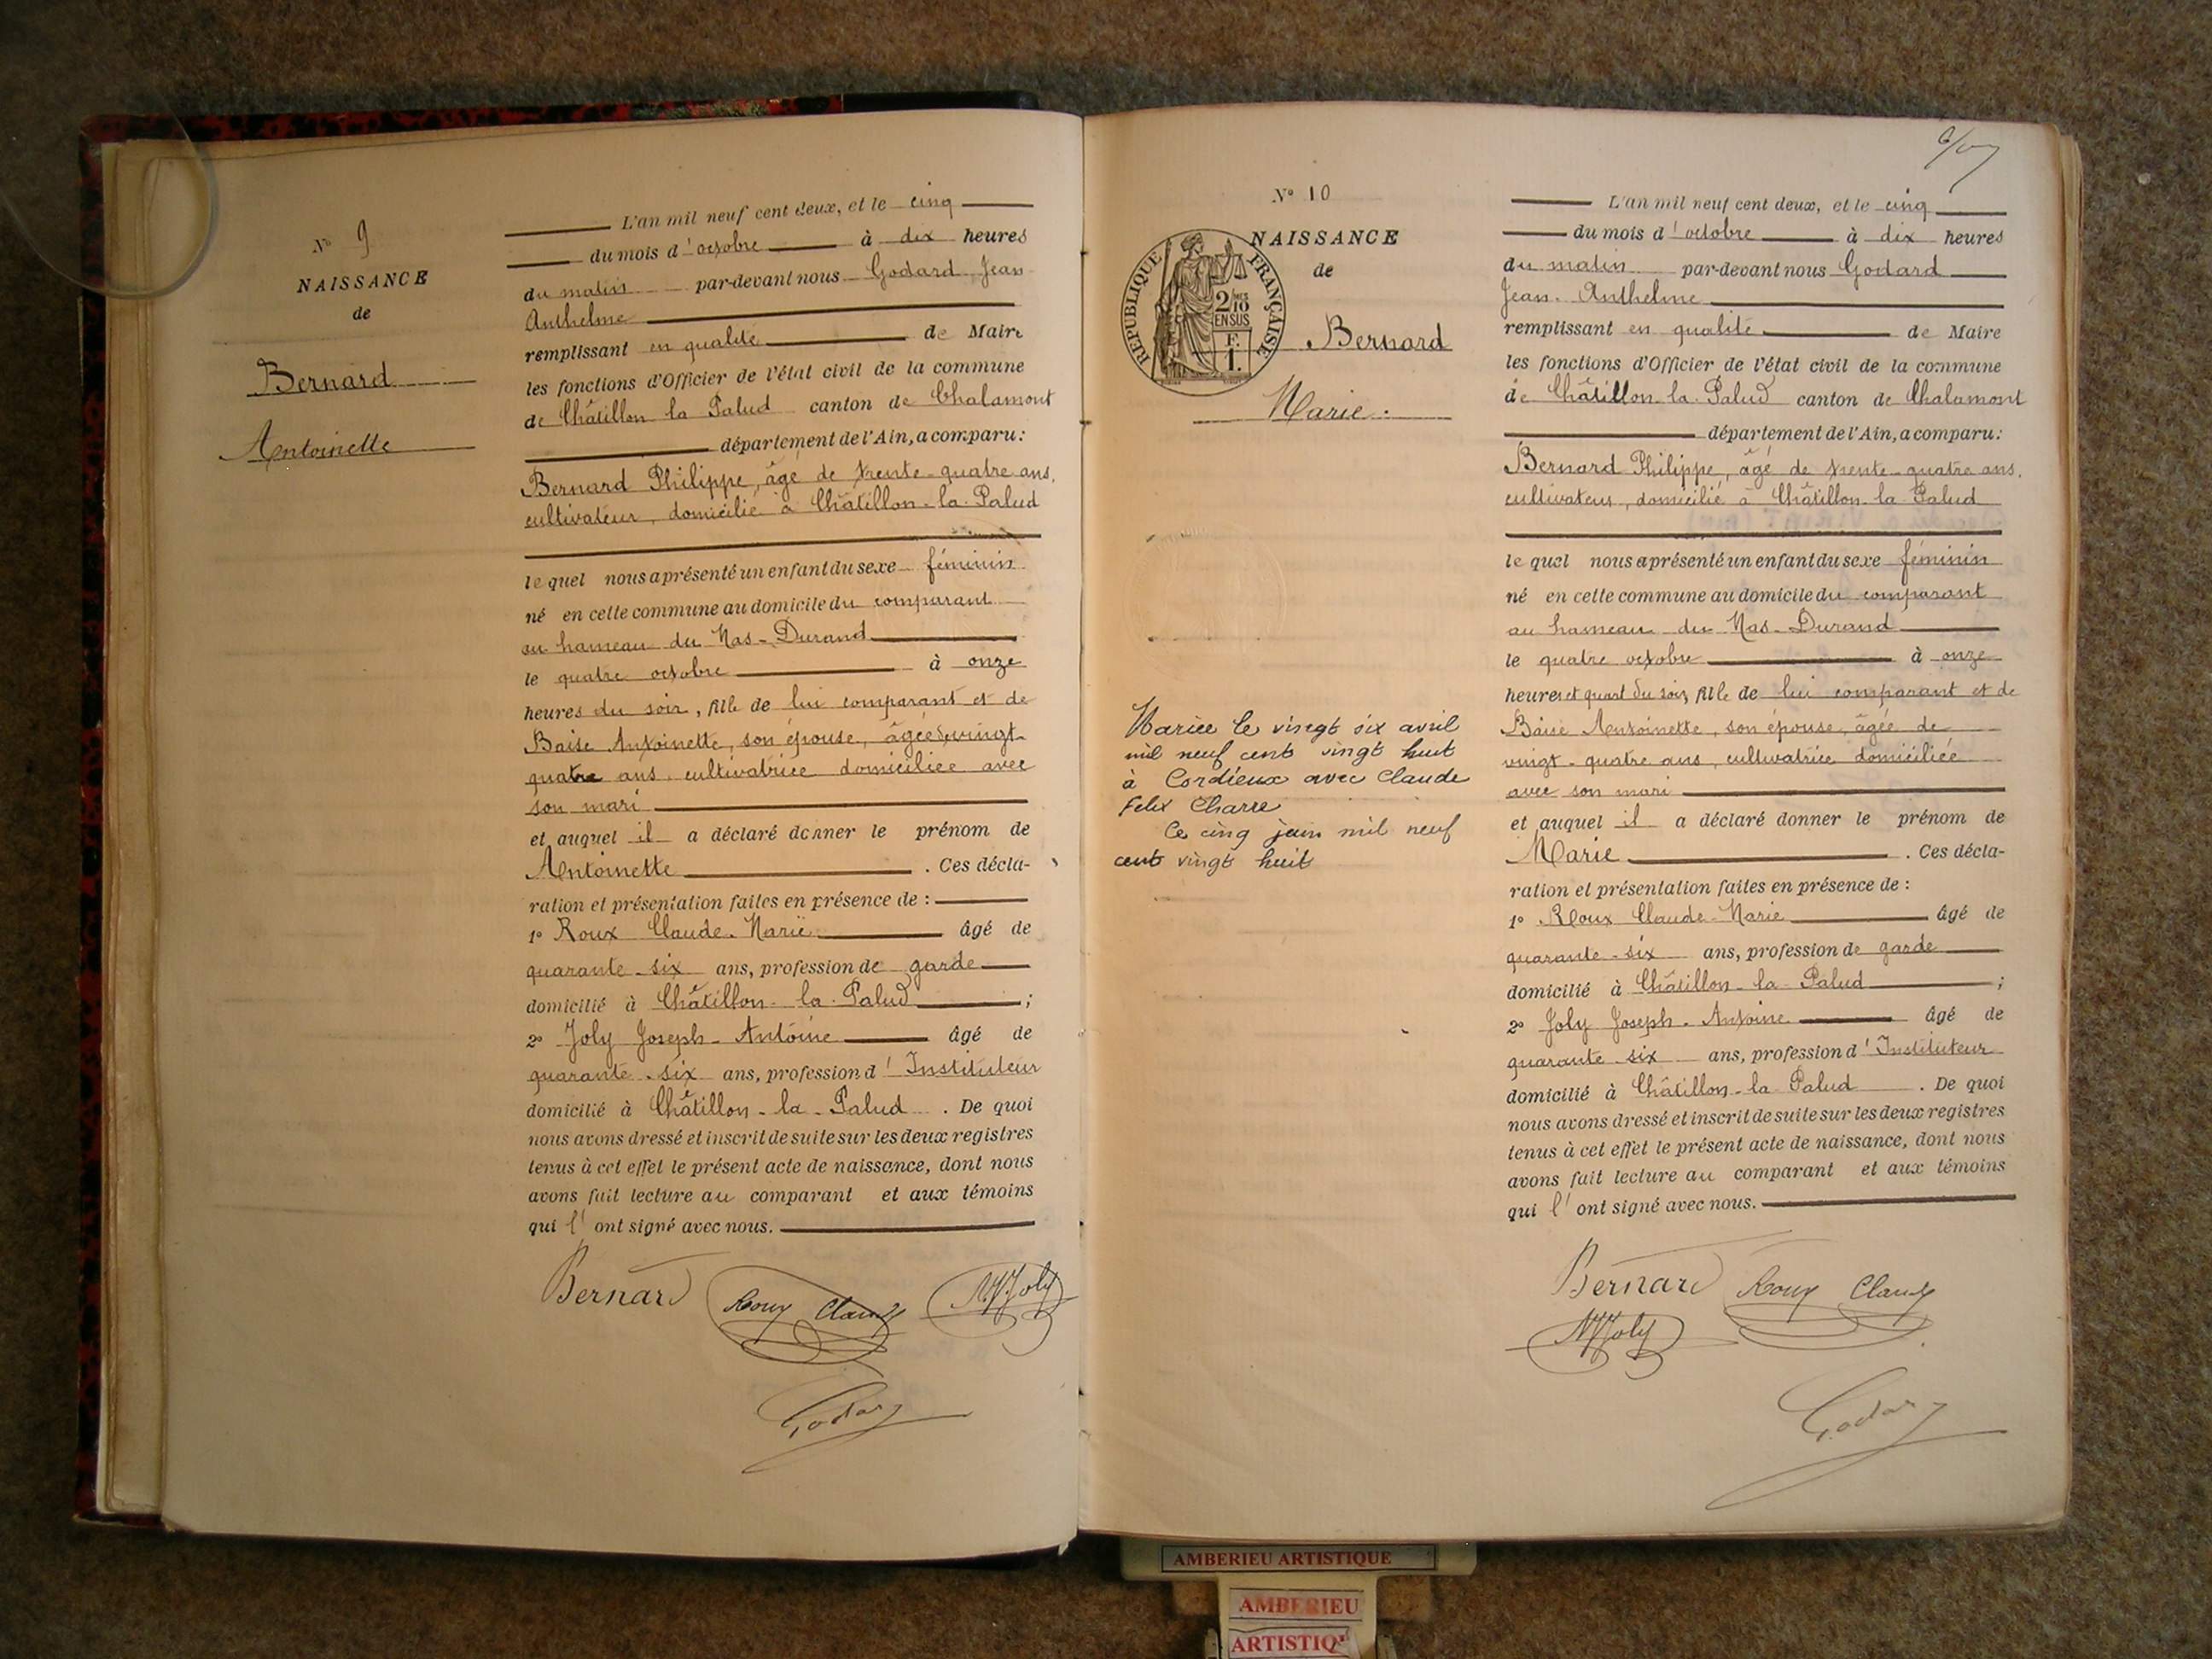 N° 9
NAISSANCE
de
Bernard
Antoinette
L'an mil neuf cent deux, et le cinq
du mois d'octobre à dix heures
du matin par-devant nous Godard Jean
Anthelme
remplissant en qualité de Maire
les fonctions d'Officier de l'état civil de la commune
de Châtillon la Palud canton de Chalamont
département de l'Ain, a comparu:
Bernard Philippe, âgé de trente-quatre ans,
cultivateur, domicilié à Châtillon-la-Palud
le quel nous a présenté un enfant du sexe féminin
né en cette commune au domicile du comparant
au hameau du Mas-Durand
le quatre octobre à onze
heures du soir, fille de lui comparant et de
Baise Antoinette, son épouse, âgée de vingt-
quatre ans cultivatrice domiciliée avec
son mari
et auquel il a déclaré donner le prénom de
Antoinette. Ces décla-
ration et présentation faites en présence de :
1° Roux Claude-Marie âgé de
quarante-six ans, profession de garde
domicilié à Châtillon-la-Palud ;
2° Joly Joseph-Antoine âgé de
quarante-six ans, profession d'Instituteur
domicilié à Châtillon-la-Palud. De quoi
nous avons dressé et inscrit de suite sur les deux registres
tenus à cet effet le présent acte de naissance, dont nous
avons fait lecture au comparant et aux témoins
qui l'ont signé avec nous.
Bernard Roux Claude Joly
Godard
N° 10
NAISSANCE
de
REPUBLIQUE FRANÇAISE
2/10 MES
EN SUS
F.
1.
Bernard
Marie.
Mariée le vingt six avril
mil neuf cent vingt huit
à Cordieux avec Claude
Felix Charre
Le cinq juin mil neuf
cent vingt huit
L'an mil neuf cent deux, et le cinq
du mois d'octobre à dix heures
du matin par-devant nous Godard
Jean-Anthelme
remplissant en qualité de Maire
les fonctions d'Officier de l'état civil de la commune
de Châtillon-la-Palud canton de Chalamont
département de l'Ain, a comparu:
Bernard Philippe, âgé de trente-quatre ans,
cultivateur, domicilié à Châtillon-la-Palud
le quel nous a présenté un enfant du sexe féminin
né en cette commune au domicile du comparant
au hameau du Mas-Durand
le quatre octobre à onze
heures et quart du soir, fille de lui comparant et de
Baise Antoinette, son épouse, âgée de
vingt-quatre ans, cultivatrice domiciliée
avec son mari
et auquel il a déclaré donner le prénom de
Marie. Ces décla-
ration et présentation faites en présence de :
1° Roux Claude-Marie âgé de
quarante-six ans, profession de garde
domicilié à Châtillon-la-Palud ;
2° Joly Joseph-Antoine âgé de
quarante six ans, profession d'Instituteur
domicilié à Châtillon-la-Palud. De quoi
nous avons dressé et inscrit de suite sur les deux registres
tenus à cet effet le présent acte de naissance, dont nous
avons fait lecture au comparant et aux témoins
qui l'ont signé avec nous.
Bernard Roux Claude
Joly
Godard
AMBERIEU ARTISTIQUE
AMBERIEU
ARTISTIQ